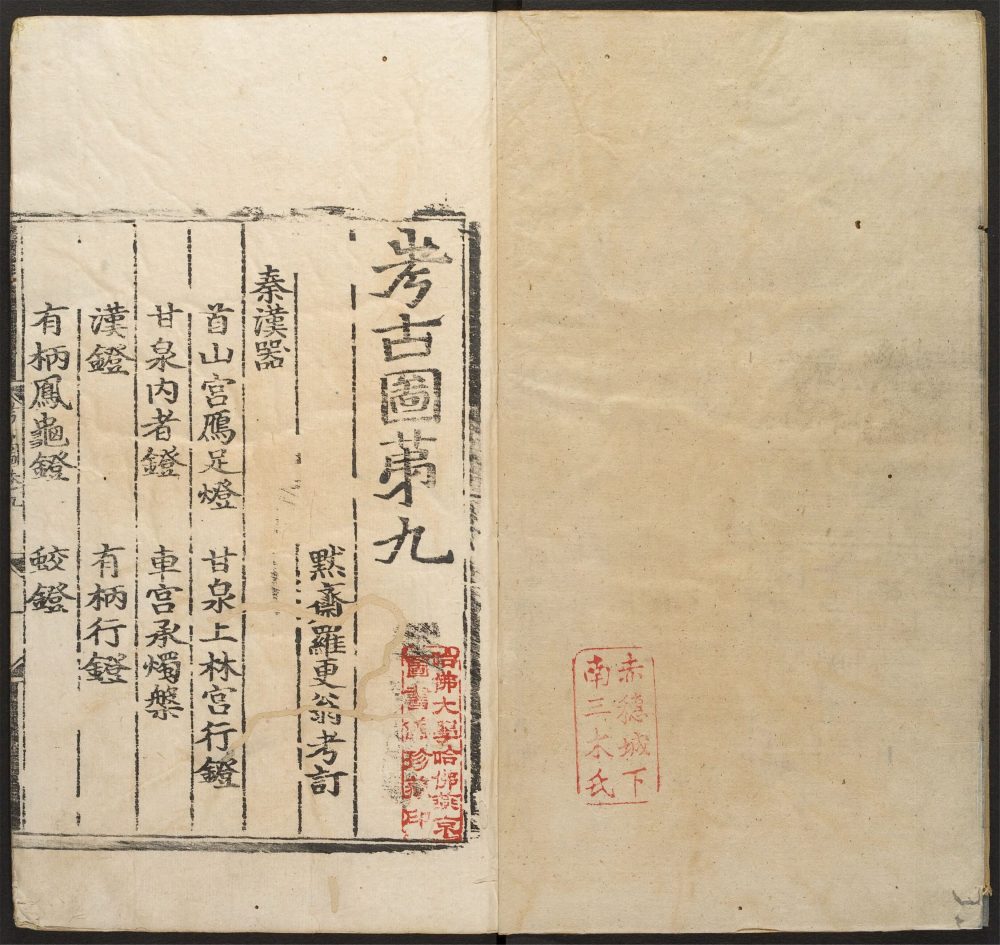 赤穗城下
南三木氏
考古圖苐九
哈佛大學哈佛燕京
圖書館珍藏印
默齋羅更翁考訂
秦漢器
首山宮鴈足燈 甘泉上林宮行鐙
甘泉内者鐙 車宮承燭槃
漢鐙 有柄行鐙
有柄鳳龜鐙 蛟鐙